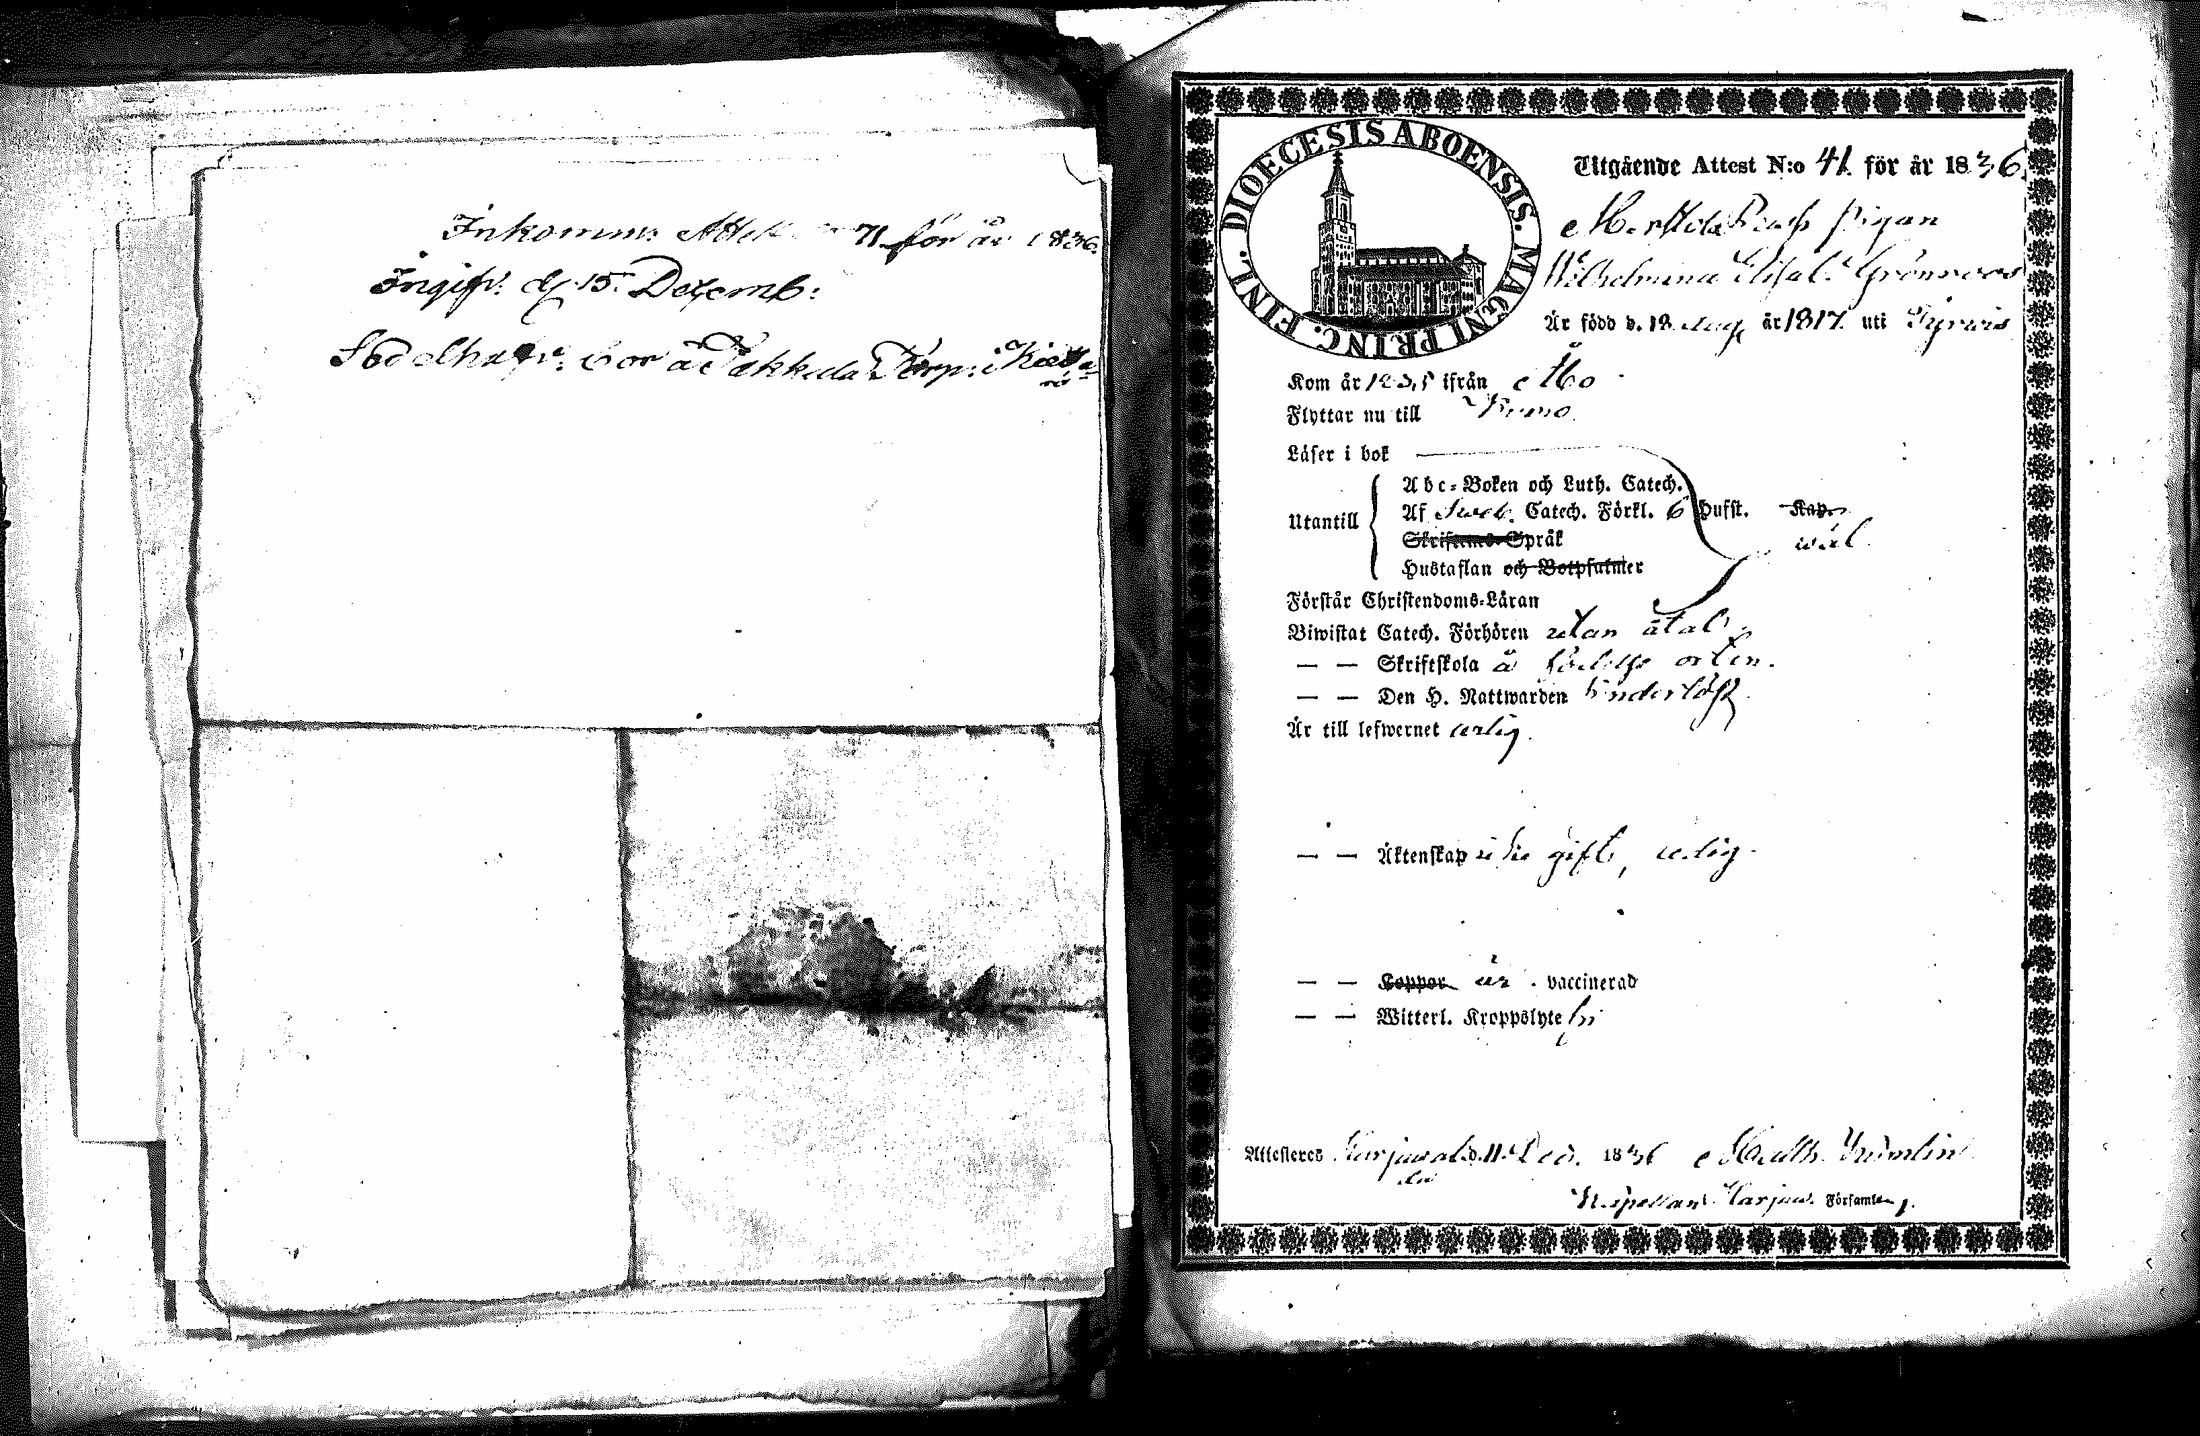 Inkomm: Attest 71 för år 1836.
Ingifv: d. 15 Decemb:
bor å Torp: i
DIOECESIS ABOENSIS. MAGNI PRINC. FINL.
Utgående Attest N:o 41 för år 1836
Pigan
Wilhelmina Elisab. Grönroos
Är född d. 18 Aug. år 1817 uti
Kom år 1835 ifrån Åbo
Flyttar nu till Kumo.
Läser i bok
Abc-Boken och Luth. Catech.
Utantill
Af Sweb. Catech. Förkl. 6 Hufst. Kap.
wäl.
Skriftens Språk
Hustaflan och Botpsalmer
Förstår Christendoms-Läran
Biwistat Catech. Förhören utan åtal.
— — Skriftskola å födelse orten.
— — Den H. Nattwarden
Är till lefwernet ärlig.
— — Äktenskap icke gift, ledig.
— — Koppor är vaccinerad
— — Witterl. Kroppslyte fri
Attesteras d. 11 Dec. 1836 Math.
Kapellan i Harjaw. Församling.